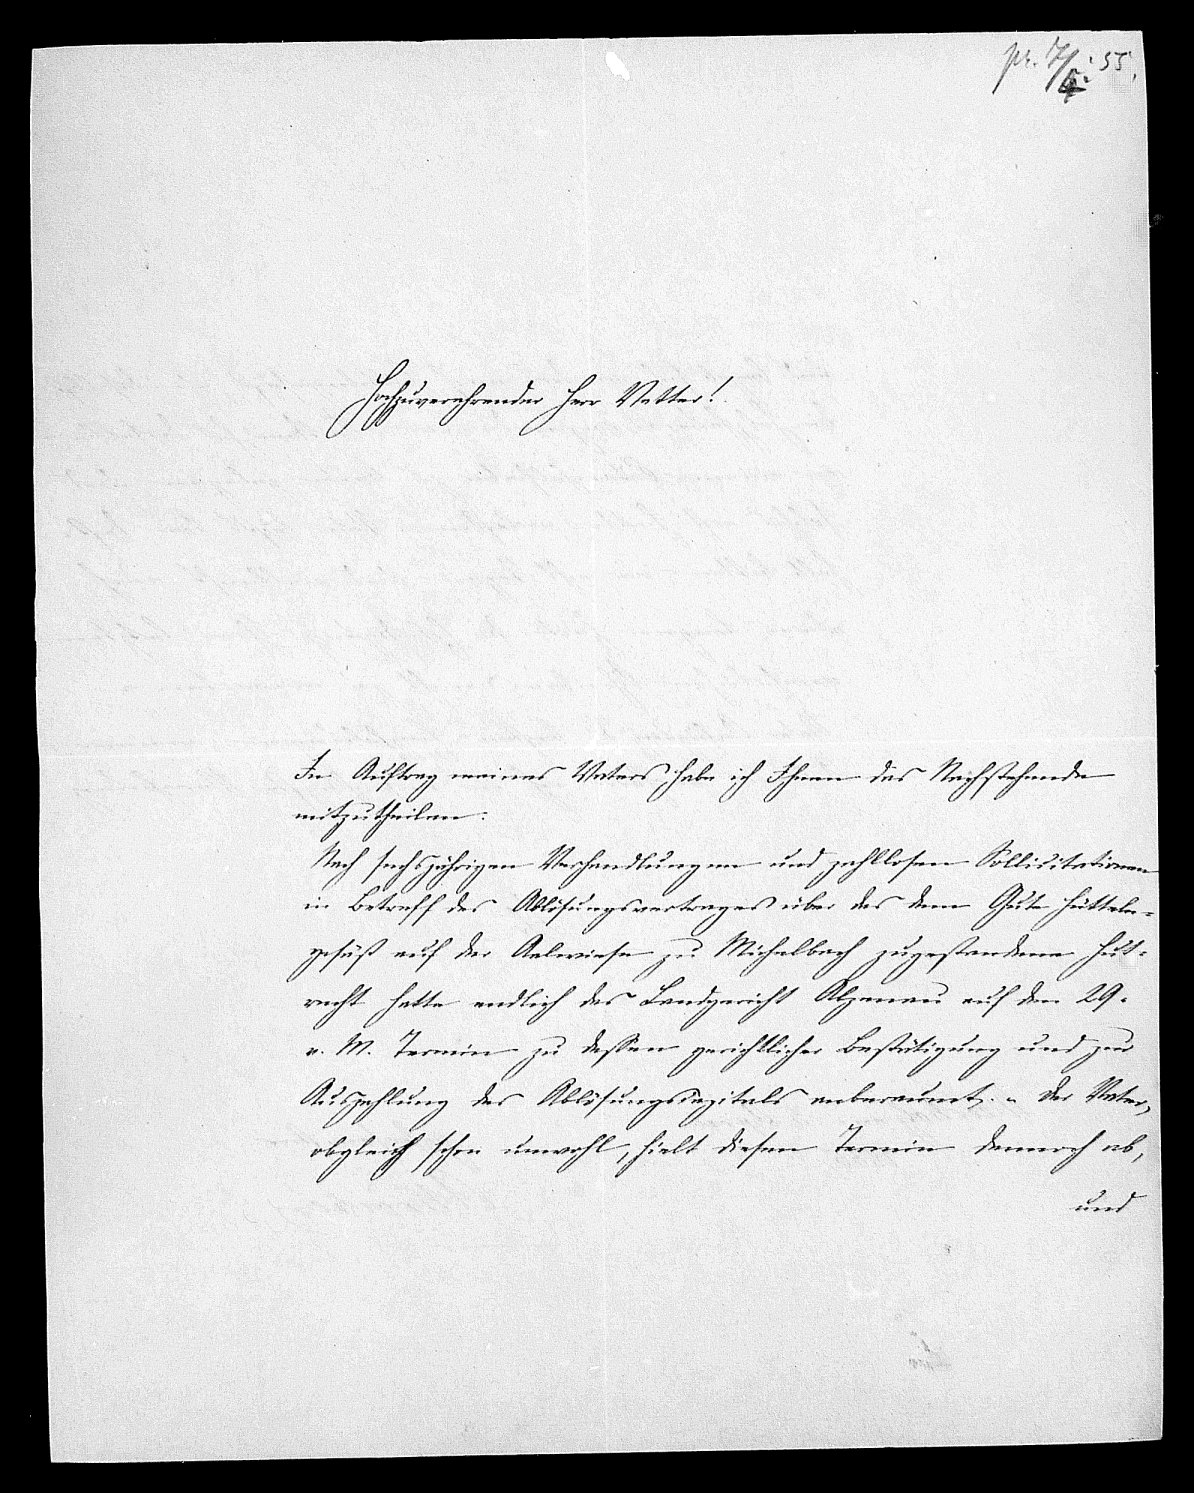 pr. 7/5. 55.
Hochzuverehrender Herr Vetter!
Im Auftrag meines Vaters habe ich Ihnen das Nachstehende
mitzutheilen:
Nach sechsjährigen Verhandlungen und zahllosen Sollicitationen
in Betreff des Ablösungsvertrages über das dem Gute Hütteln-
gesäß auf der Aalwiese zu Michelbach zugestandene Hut-
recht hatte endlich das Landgericht Alzenau auf den 29.
v. M. Termin zu dessen gerichtlicher Bestätigung und zur
Auszahlung des Ablösungscapitals anberaumt. - Der Vater,
obgleich schon unwohl, hielt diesen Termin dennoch ab,
und